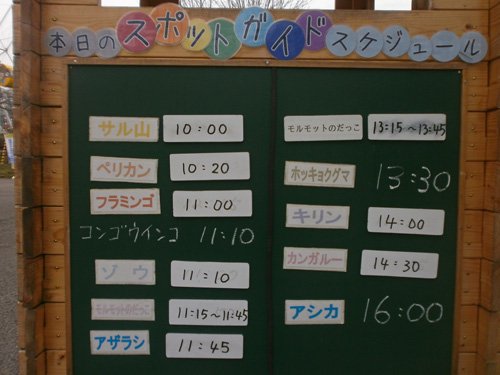 本日のスポットガイドスケジュール
サル山 10:00
ペリカン 10:20
フラミンゴ 11:00
コンゴウインコ 11:10
ゾウ 11:10
モルモットのだっこ 11:15~11:45
アザラシ 11:45
モルモットのだっこ 13:15~13:45
ホッキョクグマ 13:30
キリン 14:00
カンガルー 14:30
アシカ 16:00